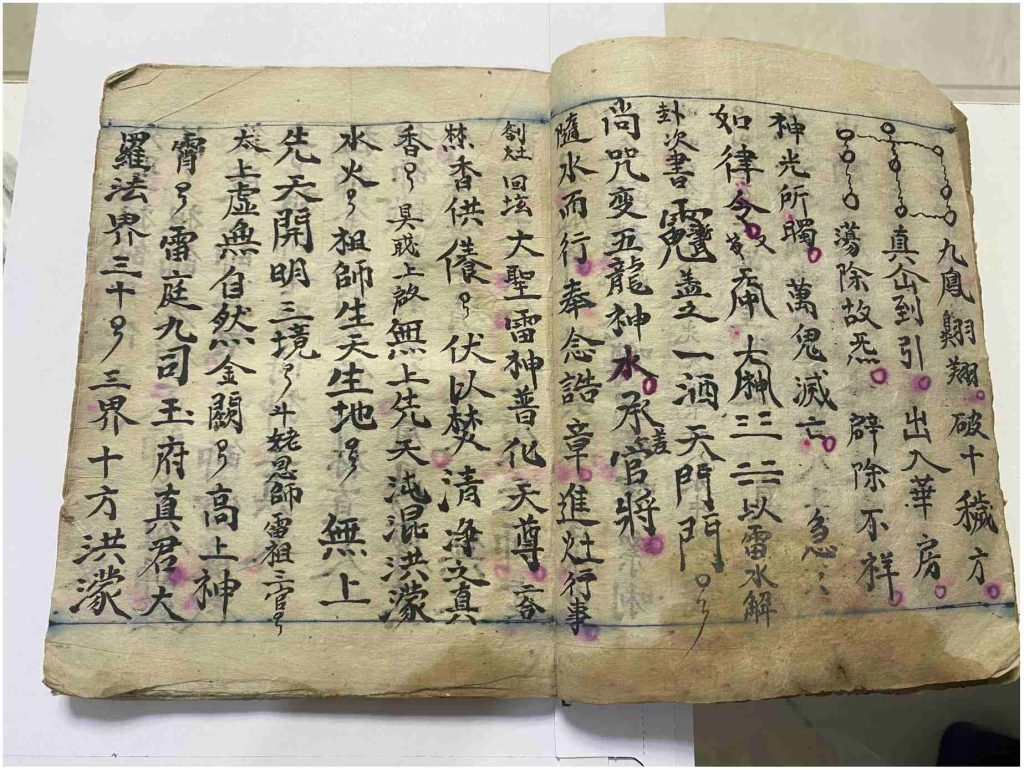 九鳳翱翔破十方穢
真仙到引出入華房
蕩除故炁辟除不祥
神光所矚萬鬼滅亡急
如律令 以雷水解
卦次書 蓋之一洒天門
尚咒变五龍神水承差官將
隨水而行奉念誥章進灶行事
剳灶回垓大聖雷神普化天尊
焚香供養伏以焚清净之真
香具戝上啟無上先天沌混洪濛
水火祖師生天生地無上
先天開明三境斗姥恩師雷祖三官
太上虛無自然金闕高上神
霄雷庭九司玉府真君大
羅法界三十三界十方洪濛